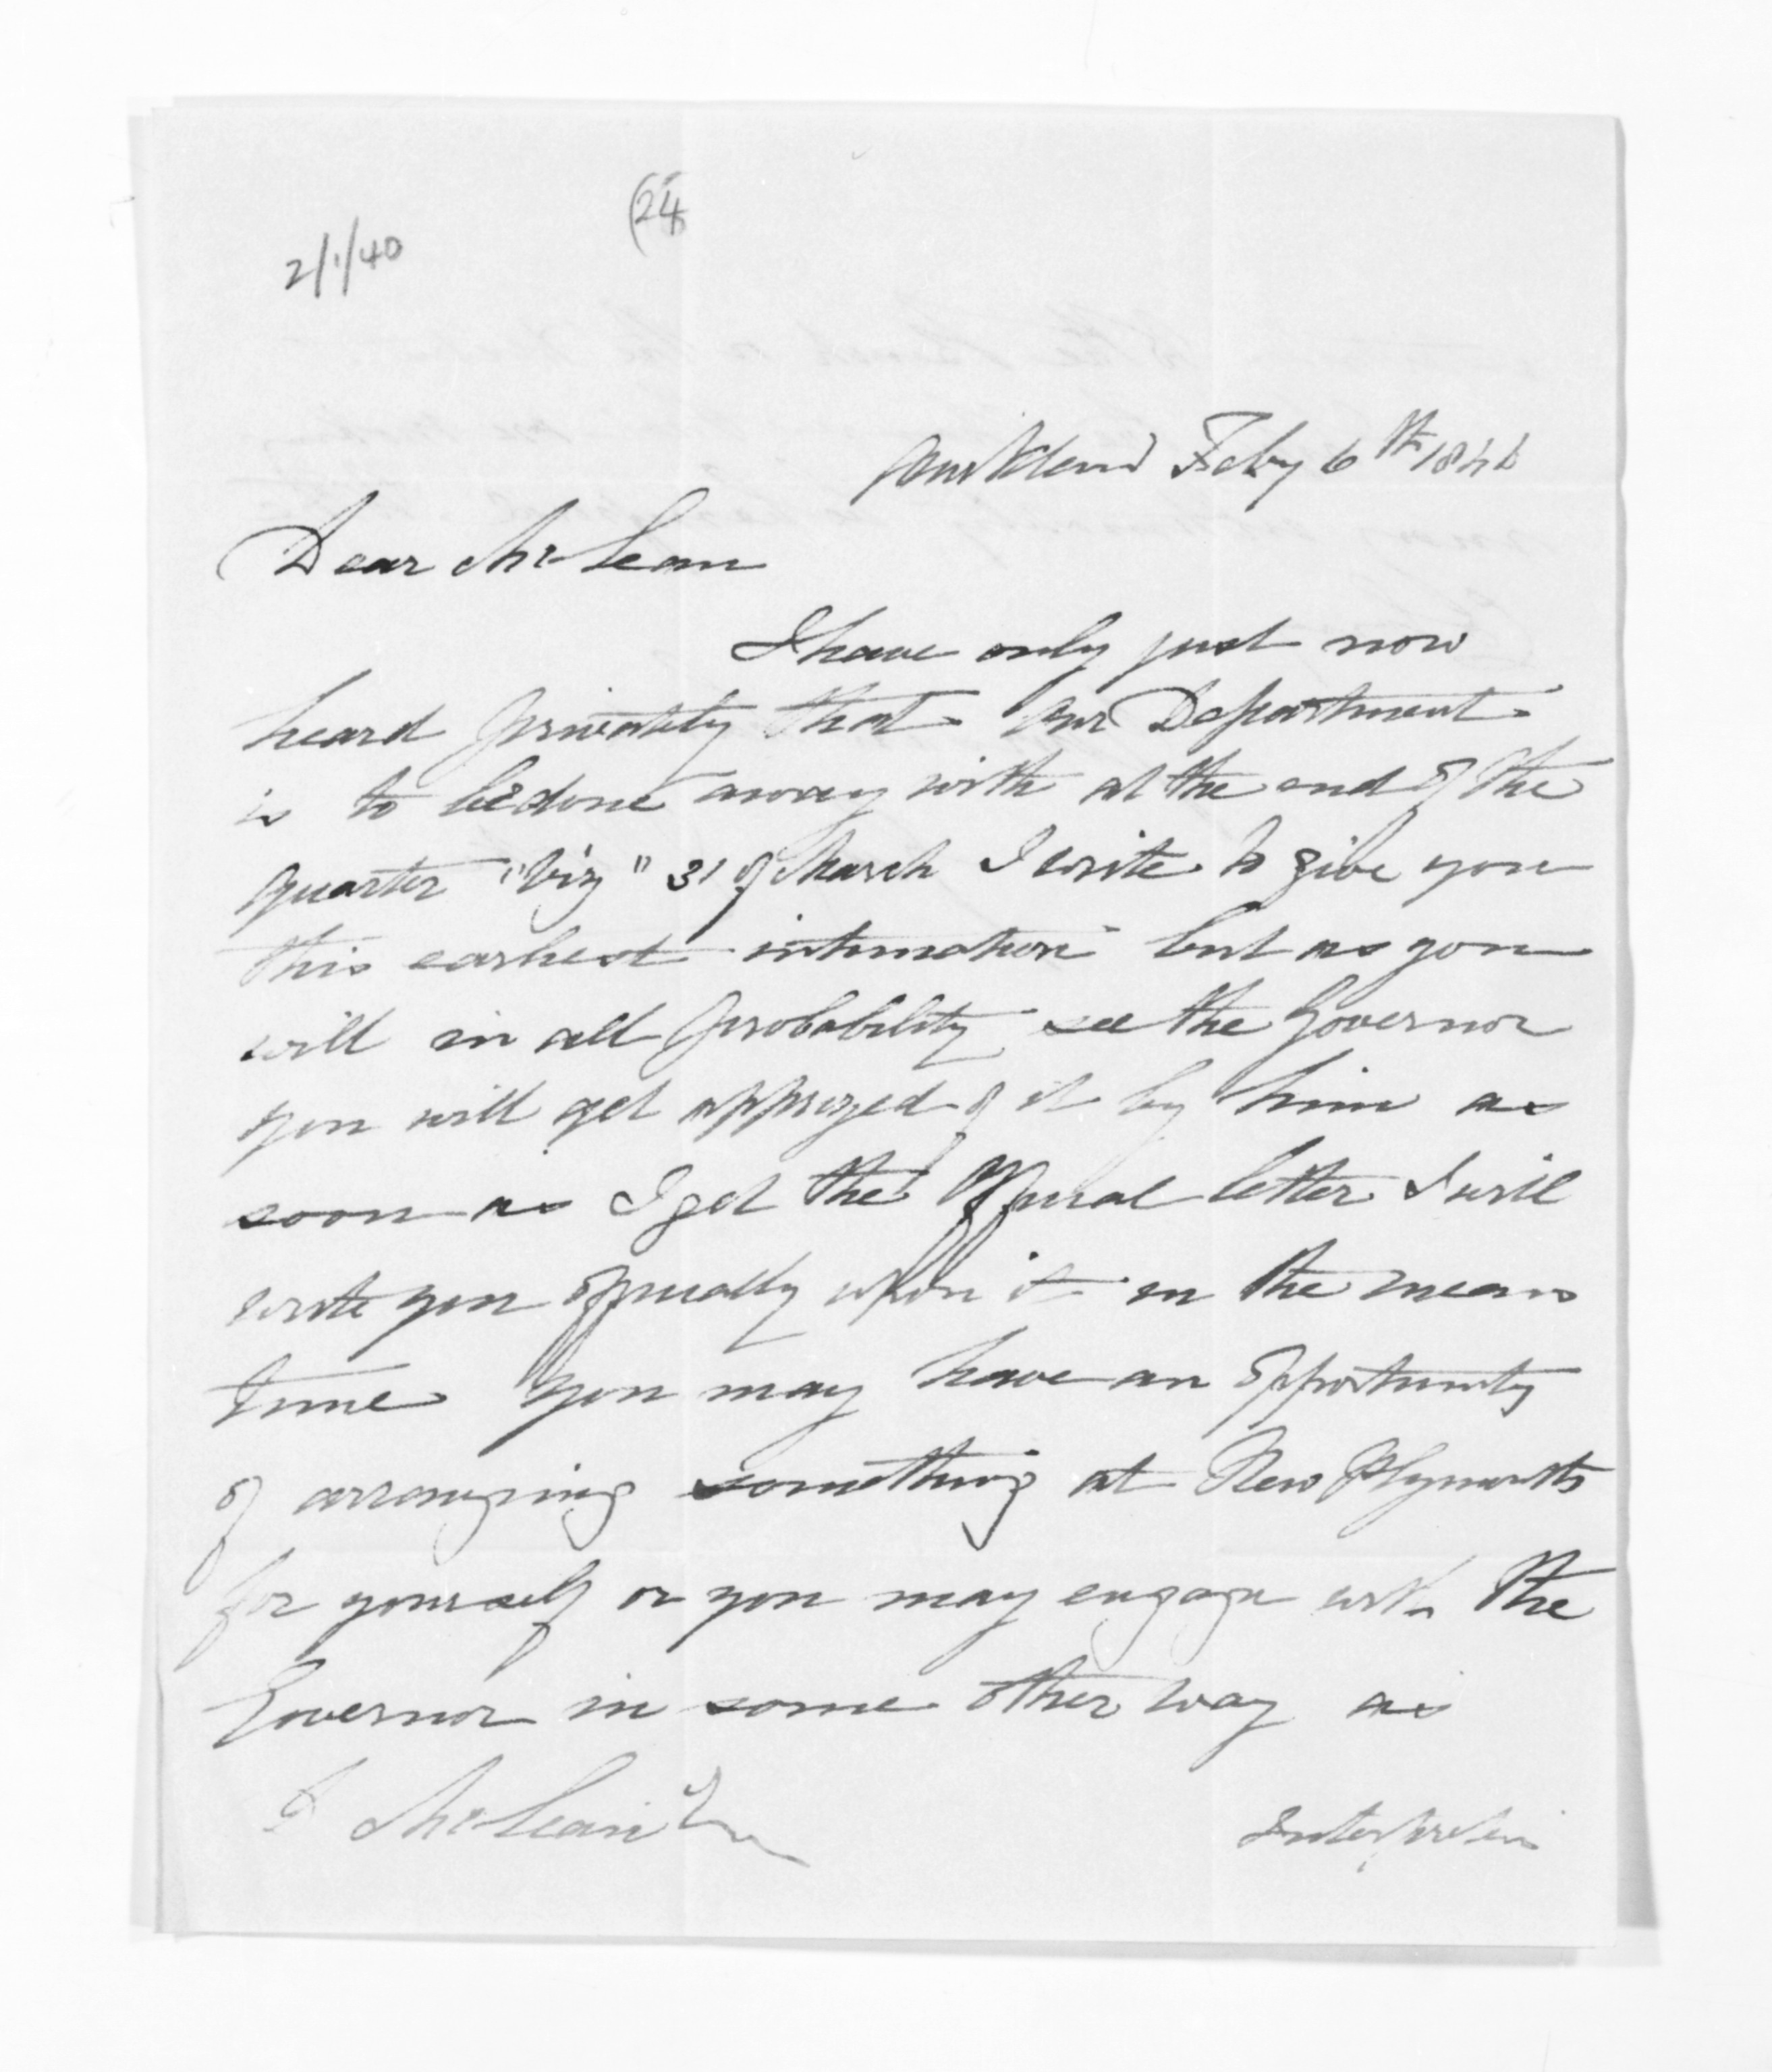 2/1/40
(24)
Auckland Feby 6th 1846
Dear McLean
I have only just now
heard privately that our Department
is to be done away with at the end of the
quarter "viz" 31 of March I write to give you
this earliest intimation but as you
will in all probability see the Governor
you will get apprized of it by him as
soon as I get the official letter I will
write you officially upon it in the mean
time you may have an opportunity
of arranging something at New Plymouth
for yourself or you may engage with the
Governor in some other way as
D McLean Esq
Interpreter